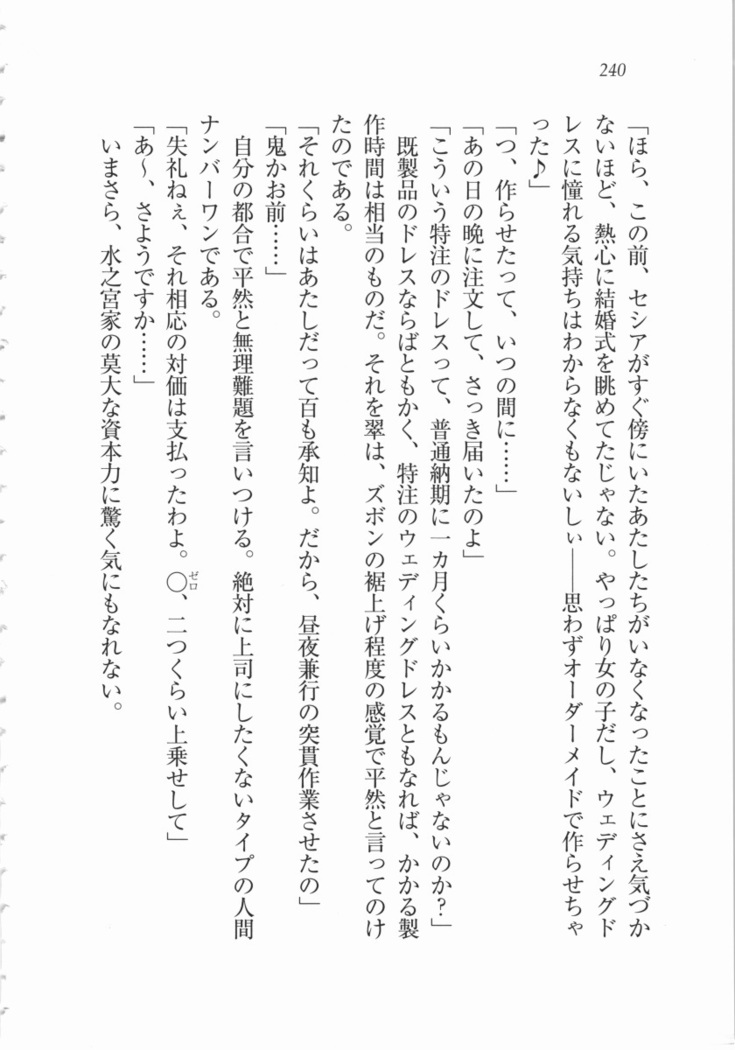 240
「ほら、この前、セシアがすぐ傍にいたあたしたちがいなくなったことにさえ気づか
ないほど、熱心に結婚式を眺めてたじゃない。やっぱり女の子だし、ウェディングド
レスに憧れる気持ちはわからなくもないしぃ――思わずオーダーメイドで作らせちゃ
った♪」
「つ、作らせたって、いつの間に……」
「あの日の晩に注文して、さっき届いたのよ」
「こういう特注のドレスって、普通納期に一カ月くらいかかるもんじゃないのか？」
既製品のドレスならばともかく、特注のウェディングドレスともなれば、かかる製
作時間は相当のものだ。それを翠は、ズボンの裾上げ程度の感覚で平然と言ってのけ
たのである。
「それくらいはあたしだって百も承知よ。だから、昼夜兼行の突貫作業させたの」
「鬼かお前……」
自分の都合で平然と無理難題を言いつける。絶対に上司にしたくないタイプの人間
ナンバーワンである。
「失礼ねぇ、それ相応の対価は支払ったわよ。〇、二つくらい上乗せして」
ゼロ
「あ～、さようですか……」
いまさら、水之宮家の莫大な資本力に驚く気にもなれない。